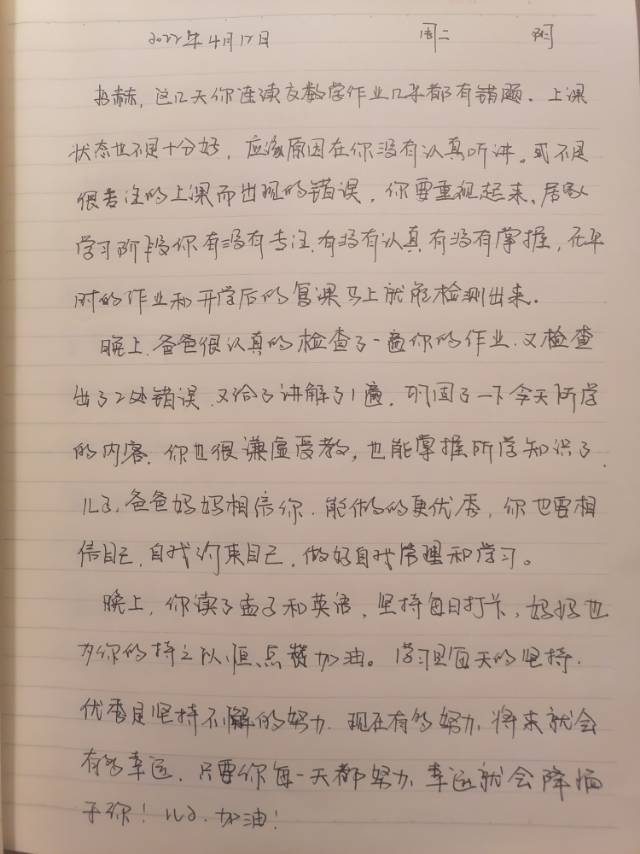 2022年4月12日 周二 阴
赫,这几天你连续交数学作业几乎都有错题.上课
状态也不是十分好,应该原因在你没有认真听讲。或不是
很专注的上课而出现的错误,你要重视起来、居家
学习阶段你有没有专注.有没有认真.有没有掌握,在平
时的作业和开学后的复课马上就能检测出来.
晚上.爸爸很认真的检查了一遍你的作业.又检查
出了2处错误.又给了讲解了1遍.巩固了一下今天所学
的内容.你也很谦虚受教,也能掌握所学知识了.
儿子,爸爸妈妈相信你.能做的更优秀,你也要相
信自己.自我约束自己.做好自我管理和学习。
晚上,你读了孟子和英语,坚持每日打卡,妈妈也
为你的持之以恒点赞加油。学习是每天的坚持.
优秀是坚持不懈的努力.现在有的努力,将来就会
有的幸运.只要你每一天都努力,幸运就会降临
于你!儿子.加油!